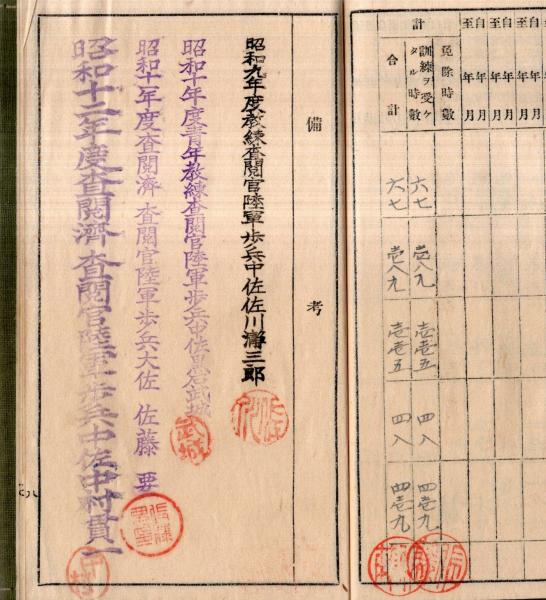 計
自 年 月
至 年 月
自 年 月
至 年 月
免除時數
訓練ヲ受ケタル時數
六七
壱八九
壱壱五
四八
四壱九
合計
六七
壱八九
壱壱五
四八
四壱九
備考
昭和九年度教練査閲官陸軍歩兵中佐佐川瀞三郎
昭和十年度青年教練査閲官陸軍歩兵中佐黒岩武城
昭和十一年度査閲済 査閲官陸軍歩兵大佐 佐藤要
昭和十二年度査閲濟 査閲官陸軍歩兵中佐中村貫一
武城
中村